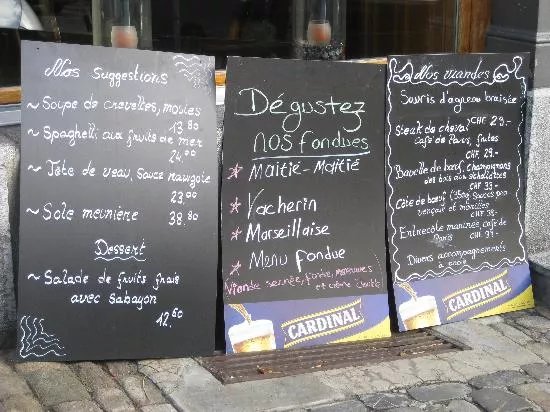 Nos suggestions
~ Soupe de crevettes, moules
13.80
~ Spaghetti aux fruits de mer
24.00
~ Tête de veau, Sauce ravigote
23.00
~ Sole meunière 38.80
Dessert
~ Salade de fruits frais
avec Sabayon
12.60
Dégustez
nos fondues
* Moitié-Moitié
* Vacherin
* Marseillaise
* Menu fondue
Viande sechée, fondue, meringues
et crème double
CARDINAL
Nos viandes
Souris d'agneau braisée
CHF 29.-
Steak de cheval
Café de Paris, frites
CHF. 29.-
Bavette de bœuf, Champignons
des bois aux échalottes
CHF 33.-
Côte de bœuf (350g) Sauces pro
vençale et morilles
CHF 38.-
Entrecôte marinée, café de
Paris CHF. 33.-
Divers accompagnements
à choix
CARDINAL